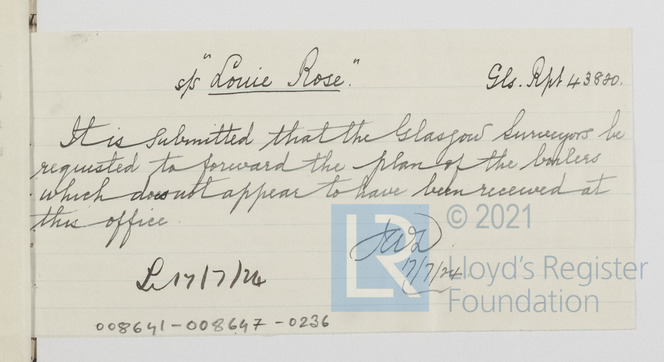 s/s "Louie Rose". Gls. Rpt 43880.
It is submitted that the Glasgow Surveyors be
requested to forward the plan of the boilers
which does not appear to have been received at
this office.
LR © 2021
17/7/24
17/7/24 Lloyd's Register
Foundation
008641-008647-0236